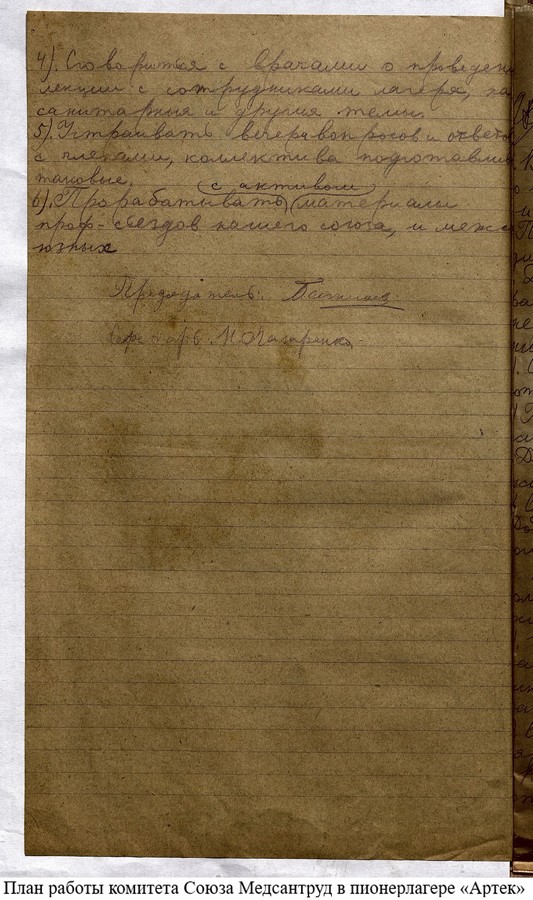 4). Сговориться с врачами о проведен
лекции с сотрудниками лагеря, на
санитарныя и другия темы.
5). Устраивать вечера вопросов и ответо
с членами, коллектива подготавли
таковые.
(с активом)
6). Прорабатывать материалы
проф-съездов нашего союза, и меж
юзных
Председатель:
Секретарь
План работы комитета Союза Медсантруд в пионерлагере «Артек»